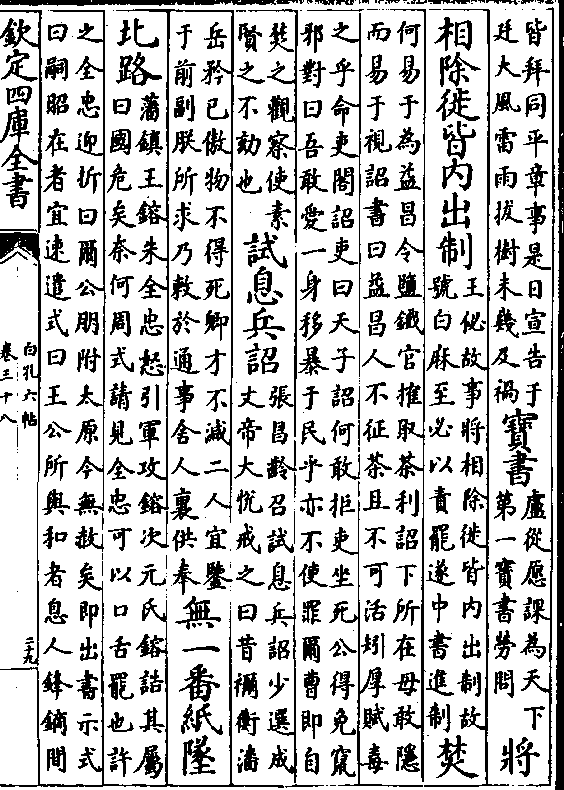 皆拜同平章事是日宣告于
廷大風雷雨拔樹未幾及禍
寶書
盧從應課為天下
第一寶書勞問
將
相除徙皆内出制
王佖故事將相除徙皆内出制故
號白麻至必以責罷遂中書進制
焚
何易于為益昌令鹽鐵官搉取茶利詔下所在毋敢隱
而易于視詔書曰益昌人不征茶且不可活矧厚賦毒
之乎命吏閣詔吏曰天子詔何敢拒吏坐死公得免竄
邪對曰吾敢愛一身移暴于民乎亦不使罪爾曹即自
焚之觀察使素
賢之不劾也
試息兵詔
張昌齡召試息兵詔少選成
丈帝大悅戒之曰昔禰衡潘
岳矜已傲物不得死卿才不減二人宜鑒
于前副朕所求乃敕於通事舍人裏供奉
無一番紙墜
北路
藩鎮王鎔朱全忠怒引軍攻鎔次元氏鎔詰其屬
曰國危矣奈何周式請見全忠可以口舌罷也許
之全忠迎折曰爾公朋附太原今無赦矣即出書示式
曰嗣昭在者宜速遣式曰王公所與和者息人鋒鏑間
欽定四庫全書
白孔六帖
卷三十八
二十九